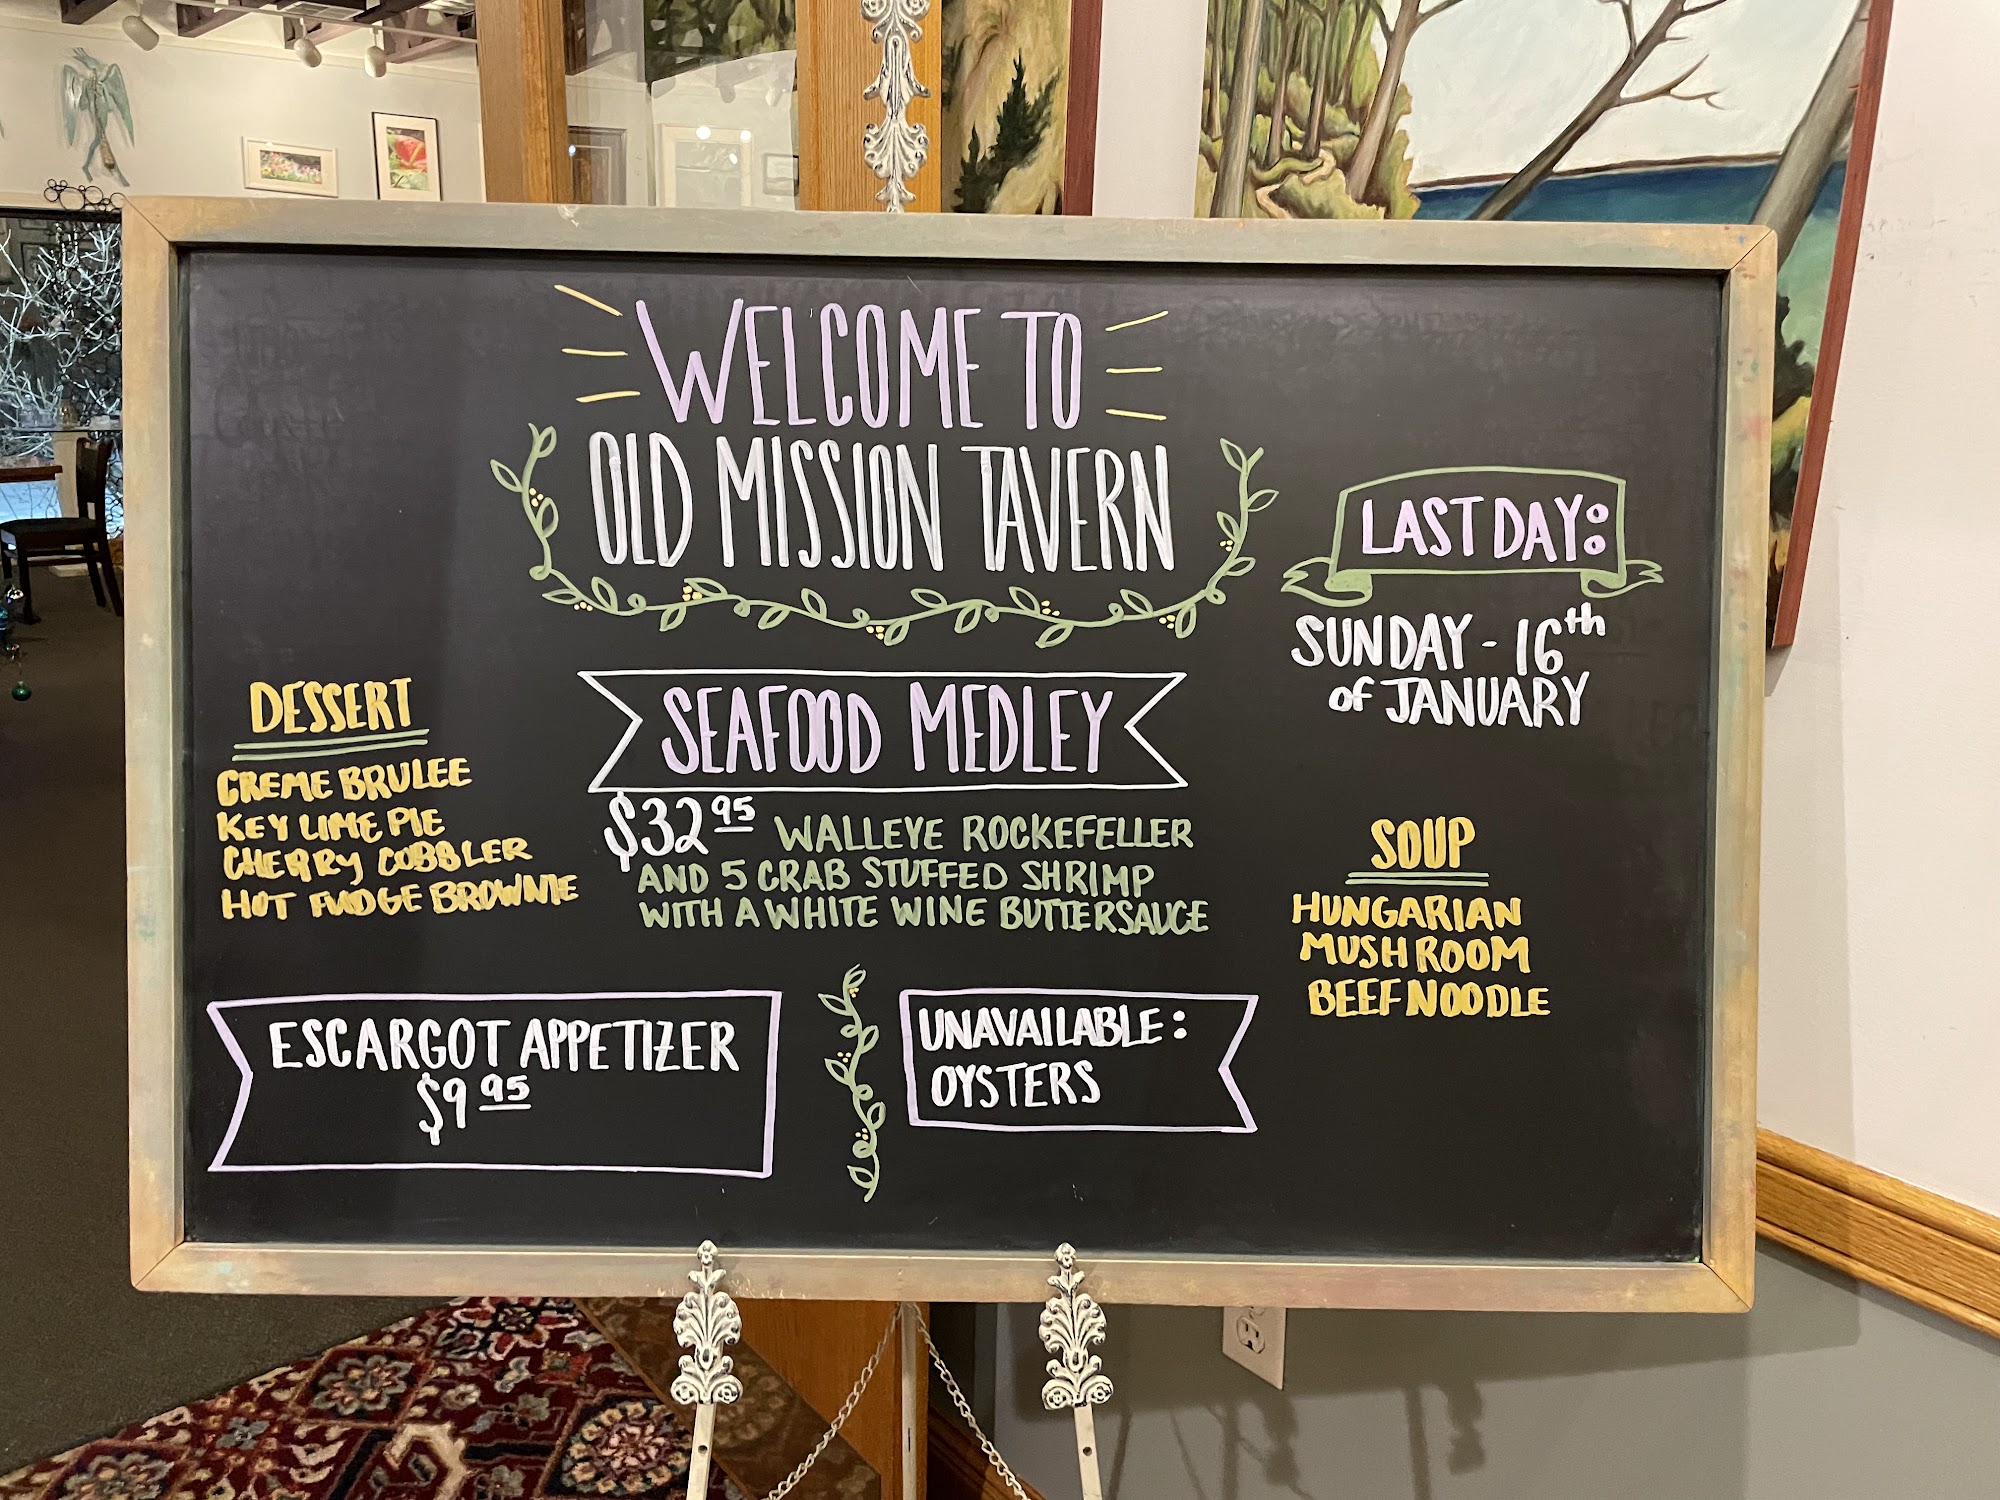 WELCOME TO
OLD MISSION TAVERN
LAST DAY:
SUNDAY - 16th
of JANUARY
DESSERT
CREME BRULEE
KEY LIME PIE
CHERRY COBBLER
HOT FUDGE BROWNIE
SEAFOOD MEDLEY
$32 95 WALLEYE ROCKEFELLER
AND 5 CRAB STUFFED SHRIMP
WITH A WHITE WINE BUTTERSAUCE
SOUP
HUNGARIAN
MUSHROOM
BEEF NOODLE
ESCARGOT APPETIZER
$9 95
UNAVAILABLE:
OYSTERS